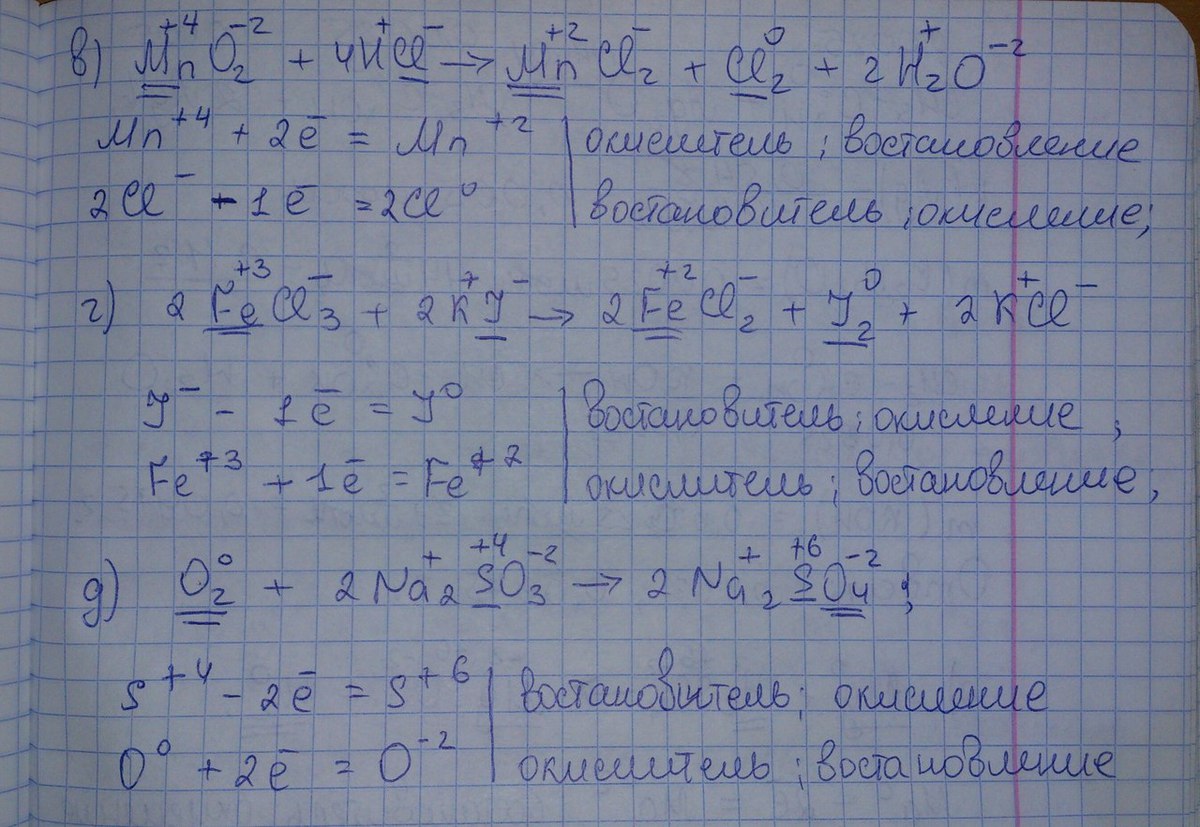 в) Mn⁺⁴O₂⁻² + 4H⁺Cl⁻ → Mn⁺²Cl₂⁻ + Cl₂⁰ + 2H₂⁺O⁻²
Mn⁺⁴ + 2ē = Mn⁺² | окислитель ; востановление
2Cl⁻ - 1ē = 2Cl⁰ | востановитель ; окисление;
г) 2Fe⁺³Cl₃⁻ + 2K⁺J⁻ → 2Fe⁺²Cl₂⁻ + J₂⁰ + 2K⁺Cl⁻
J⁻ - 1ē = J⁰ | востановитель ; окисление ;
Fe⁺³ + 1ē = Fe⁺² | окислитель ; востановление;
д) O₂⁰ + 2Na₂⁺S⁺⁴O₃⁻² → 2Na₂⁺S⁺⁶O₄⁻² ;
S⁺⁴ - 2ē = S⁺⁶ | востановитель; окисление
O⁰ + 2ē = O⁻² | окислитель ; востановление